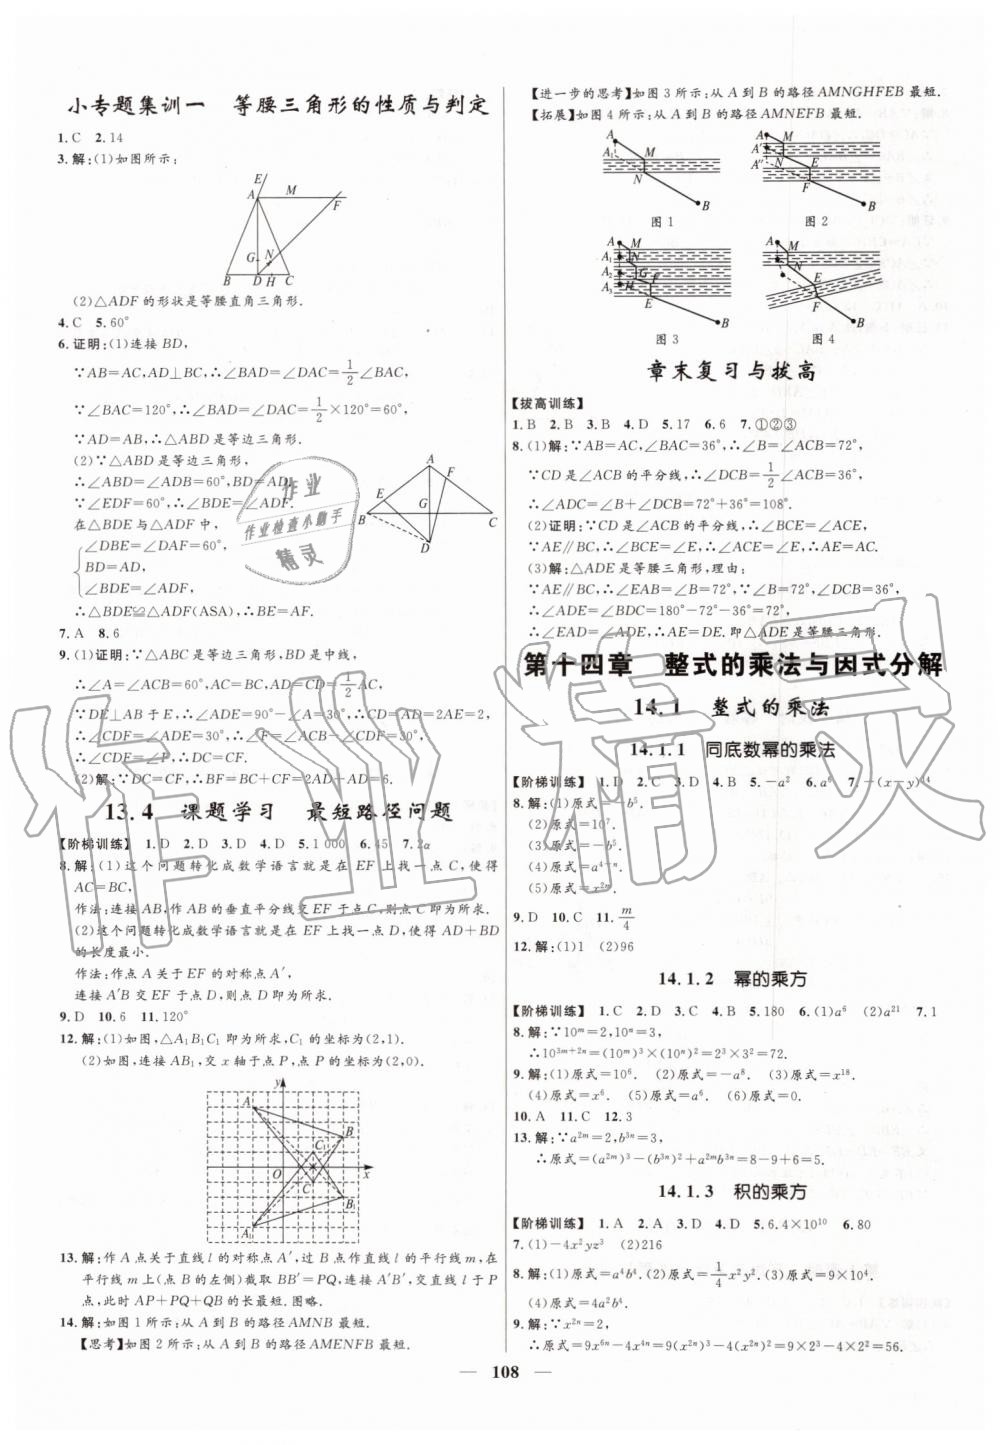 小专题集训一　等腰三角形的性质与判定
1. C　2. 14
3. 解:(1)如图所示:
E
A M F
G N
B D H C
(2)△ADF的形状是等腰直角三角形.
4. C　5. 60°
6. 证明:(1)连接BD,
∵AB=AC,AD⊥BC,∴∠BAD=∠DAC=1/2∠BAC,
∵∠BAC=120°,∴∠BAD=∠DAC=1/2×120°=60°.
∵AD=AB,∴△ABD是等边三角形.
(2)∵△ABD是等边三角形,
∴∠ABD=∠ADB=60°,BD=AD.
∵∠EDF=60°,∴∠BDE=∠ADF.
在△BDE与△ADF中,
∠DBE=∠DAF=60°,
BD=AD,
∠BDE=∠ADF,
∴△BDE≌△ADF(ASA),∴BE=AF.
A
E F
G
B C
D
7. A　8. 6
9. (1)证明:∵△ABC是等边三角形,BD是中线,
∴∠A=∠ACB=60°,AC=BC,AD=CD=1/2AC,
∵DE⊥AB于E,∴∠ADE=90°-∠A=30°,∴CD=AD=2AE=2,
∴∠CDF=∠ADE=30°,∴∠F=∠ACB-∠CDF=30°,
∴∠CDF=∠F,∴DC=CF.
(2)解:∵DC=CF,∴BF=BC+CF=2AD+AD=6.
13.4　课题学习　最短路径问题
【阶梯训练】　1. D　2. D　3. D　4. D　5. 1 000　6. 45　7. 2α
8. 解:(1)这个问题转化成数学语言就是在EF上找一点C,使得
AC=BC,
作法:连接AB,作AB的垂直平分线交EF于点C,则点C即为所求.
(2)这个问题转化成数学语言就是在EF上找一点D,使得AD+BD
的长度最小.
作法:作点A关于EF的对称点A′,
连接A′B交EF于点D,则点D即为所求.
9. D　10. 6　11. 120°
12. 解:(1)如图,△A₁B₁C₁即为所求,C₁的坐标为(2,1).
(2)如图,连接AB₁,交x轴于点P,点P的坐标为(2,0).
y
A
B
C₁
O x
C
B₁
A₁
13. 解:作A点关于直线l的对称点A′,过B点作直线l的平行线m,在
平行线m上(点B的左侧)截取BB′=PQ,连接A′B′,交直线l于P
点,此时AP+PQ+QB的长最短.图略.
14. 解:如图1所示:从A到B的路径AMNB最短.
【思考】如图2所示:从A到B的路径AMENFB最短.
【进一步的思考】如图3所示:从A到B的路径AMNGHFEB最短.
【拓展】如图4所示:从A到B的路径AMNEFB最短.
A
A₁ M
N
B
图1
A
A′ M
A″ N E
F
B
图2
A M
A₁ N
A₂ G
A₃ H F
E
B
图3
A M
N E
F
B
图4
章末复习与拔高
【拔高训练】
1. B　2. B　3. B　4. D　5. 17　6. 6　7. ①②③
8. (1)解:∵AB=AC,∠BAC=36°,∴∠B=∠ACB=72°,
∵CD是∠ACB的平分线,∴∠DCB=1/2∠ACB=36°,
∴∠ADC=∠B+∠DCB=72°+36°=108°.
(2)证明:∵CD是∠ACB的平分线,∴∠BCE=∠ACE,
∵AE∥BC,∴∠BCE=∠E,∴∠ACE=∠E,∴AE=AC.
(3)解:△ADE是等腰三角形,理由:
∵AE∥BC,∴∠EAB=∠B=72°,∵∠B=72°,∠DCB=36°,
∴∠ADE=∠BDC=180°-72°-36°=72°,
∴∠EAD=∠ADE,∴AE=DE.即△ADE是等腰三角形.
第十四章　整式的乘法与因式分解
14.1　整式的乘法
14.1.1　同底数幂的乘法
【阶梯训练】　1. D　2. C　3. D　4. B　5. -a²　6. a⁶　7. -(x-y)¹⁴
8. 解:(1)原式=-b⁵.
(2)原式=10⁷.
(3)原式=-b⁵.
(4)原式=a⁴⁻ⁿ.
(5)原式=x²ᵐ.
9. D　10. C　11. m/4
12. 解:(1)1　(2)96
14.1.2　幂的乘方
【阶梯训练】　1. C　2. D　3. C　4. B　5. 180　6. (1)a⁶　(2)a²¹　7. 1
8. 解:∵10ᵐ=2,10ⁿ=3,
∴10³ᵐ⁺²ⁿ=(10ᵐ)³×(10ⁿ)²=2³×3²=72.
9. 解:(1)原式=10⁶.　(2)原式=-a⁸.　(3)原式=x¹⁸.
(4)原式=x⁶.　(5)原式=a⁶.　(6)原式=0.
10. A　11. C　12. 3
13. 解:∵a²ᵐ=2,b³ⁿ=3,
∴原式=(a²ᵐ)³-(b³ⁿ)²+a²ᵐb³ⁿ=8-9+6=5.
14.1.3　积的乘方
【阶梯训练】　1. A　2. A　3. A　4. D　5. 6.4×10¹⁰　6. 80
7. (1)-4x²yz³　(2)216
8. 解:(1)原式=a⁴b⁴.　(2)原式=1/4x²y².　(3)原式=9×10⁴.
(4)原式=4a²b⁴.
9. 解:∵x²ⁿ=2,
∴原式=9x⁶ⁿ-4x⁴ⁿ=9(x²ⁿ)³-4(x²ⁿ)²=9×2³-4×2²=56.
108
作业
作业检查小助手
精灵
作业精灵